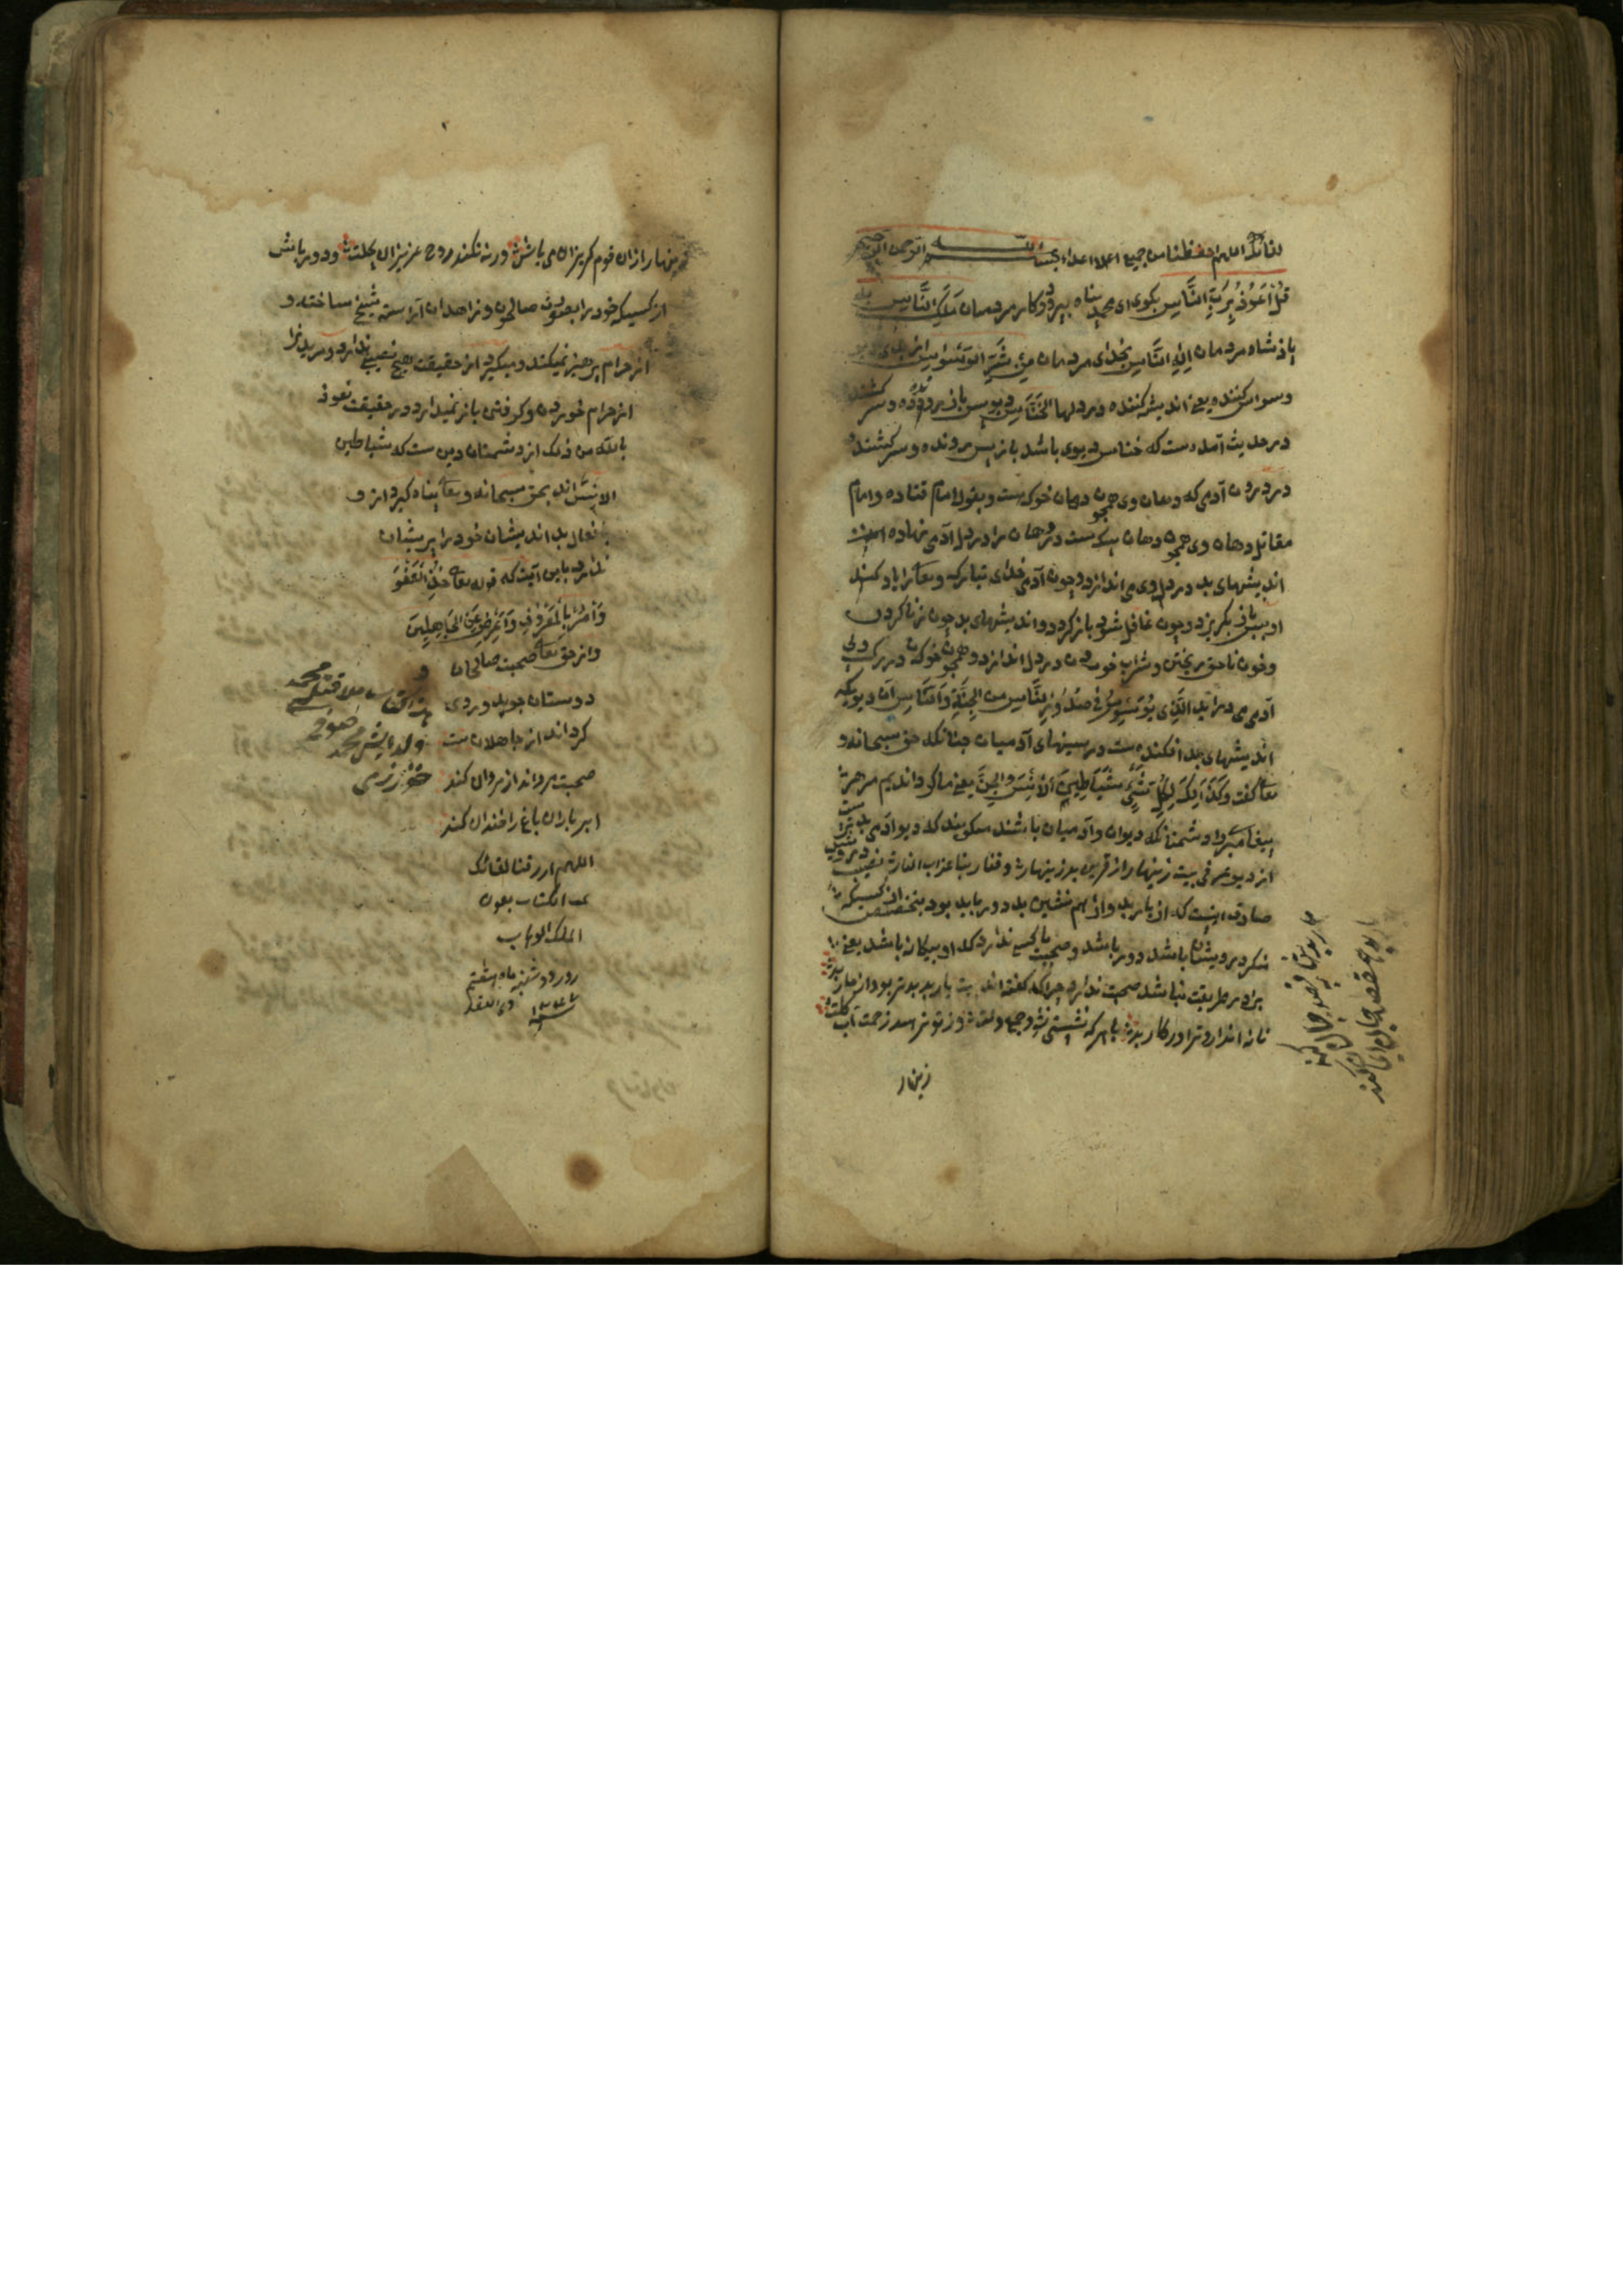 لقائك اللهم احفظنا من جميع اعدا بسم الله الرحمن الرحيم
قُلْ أَعُوذُ بِرَبِّ النَّاسِ بكوى اى محمد پناه بپروردكار مردمان مَلِكِ النَّاسِ
پادشاه مردمان اِلٰهِ النَّاسِ بخداى مردمان مِنْ شَرِّ الْوَسْوَاسِ از بدى
وسواس كننده يعنى انديشه كننده در دلها الخَنَّاسِ ديو پس باز
در حديث آمده ست كه خناس ديوى باشد باز پس رونده و سركشنده
در درون آدمى كه دهان وى همچون دهان خوك ست و بقول امام قتاده و امام
مقاتل دهان وى همچون دهان سك ست دهان را در دل آدمى نهاده است
انديشهاى بد در دل وى مى اندازد و چون آدمى خداى تبارك وتعالى را ياد كند
او پس باز بكريزد و چون غافل شود باز كردد و انديشهاى بد چون زنا كردن
و خون ناحق ريختن و شراب خوردن در دل اندازد و همچون خوك در رك و پى
آدمى مى درآيد الَّذِى يُوَسْوِسُ فِى صُدُورِ النَّاسِ مِنَ الْجِنَّةِ وَالنَّاسِ آن ديويكه
انديشهاى بد افكنده ست در سينهاى آدميان چنانكه حق سبحانه و
تعالى كفت وكذلك لكل شياطين الانس والجن يعنى ما كردانيديم مر هر
پيغامبر را دشمنانكه ديوان و آدميان باشند ميكويند كه ديو آدمى بدترست
از ديو پرى بيت زينهار از قرين بد زينهار وقنا ربنا عذاب النار نصيب درويش
صادق اينست كه از يار بد و از هم نشين بد دور بايد بود بتخصيص از كسيكه
شكر درويشان باشد دور باشد و صحبت با كسى ندارد كه او بيكانه باشد يعنى
برادر طريقت نباشد صحبت ندارد چراكه كفته اند بيت يار بد بدتر بود از مار بد
تا نه اندازد ترا در كار بد با هر كه نشستى و نشد جمع دلت وز تو نرميد زحمت آب و كلت
زينهار
زينهار ازان قوم كريزان مى باش ورنه نكند روح عزيزان بحلت و دور باش
از كسيكه خود را بصورت صالحون و زاهدان آراسته شيخ ساخته و
از حرام پرهيز نميكند و ميكيرد از حقيقت هيچ نصيبى ندارد و مريد را
از حرام خوردن و كرفتن باز نميدارد در حقيقت نعوذ
بالله من ذلك از دشمنان دين ست كه شياطين
الانس اند بحق سبحانه وتعالى پناه كيرد از و
افعال بد انديشان خود را پريشان
ندارد باين آيت كه قوله تعالى خُذِ الْعَفْوَ
وَأْمُرْ بِالْمَعْرُوفِ وَأَعْرِضْ عَنِ الْجَاهِلِينَ
و از حق تعالى صحبت صالحان و
دوستان جويد و روى
كرداند از جاهلان بيت
صحبت مردانت از مردان كند
ابر باران باغ را خندان كند
اللهم ارزقنا لقائك
تمت الكتاب بعون
الملك الوهاب
روز دوشنبه ماه هشتم
ذى القعده